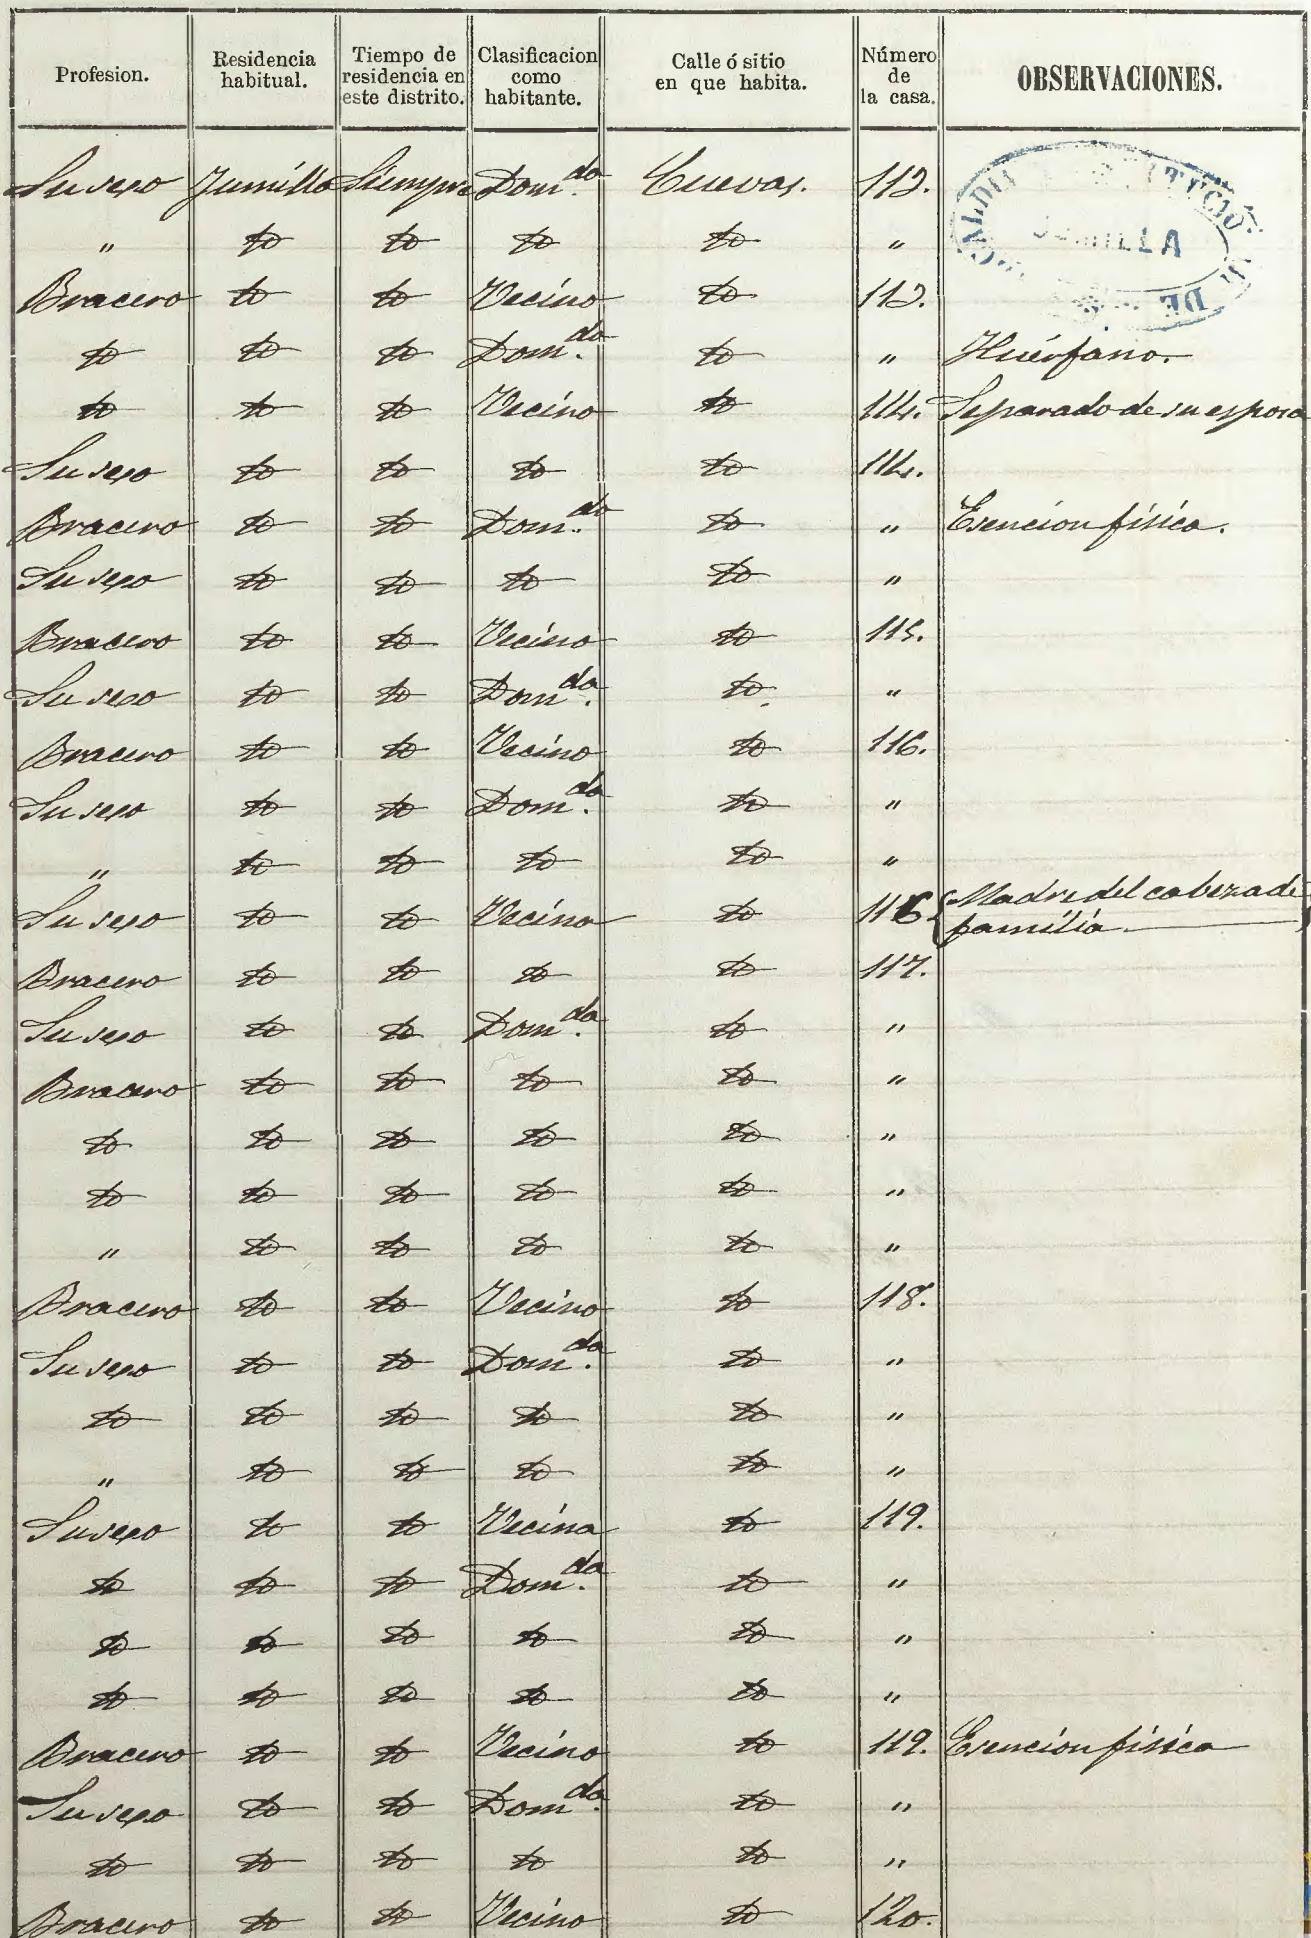 Profesion. Residencia habitual. Tiempo de residencia en este distrito. Clasificacion como habitante. Calle ó sitio en que habita. Número de la casa. OBSERVACIONES.
JUMILLA
Su sexo Jumilla Siempre Dom.do Cuevas. 112.
" to to to to "
Bracero to to Vecino to 113.
to to to Dom.do to " Huérfano.
to to to Vecino to 114. Separado de su esposa
Su sexo to to to to 114.
Bracero to to Dom.do to " Esencion física.
Su sexo to to to to "
Bracero to to Vecino to 115.
Su sexo to to Dom.da to "
Bracero to to Vecino to 116.
Su sexo to to Dom.da to "
" to to to to "
Su sexo to to Vecina to 116 Madre del cabeza de
familia
Bracero to to to to 117.
Su sexo to to Dom.da to "
Bracero to to to to "
to to to to to "
to to to to to "
" to to to to "
Bracero to to Vecino to 118.
Su sexo to to Dom.da to "
to to to to to "
" to to to to "
Su sexo to to Vecina to 119.
to to to Dom.da to "
to to to to to "
to to to to to "
Bracero to to Vecino to 119. Esencion física
Su sexo to to Dom.da to "
to to to to to "
Bracero to to Vecino to 120.